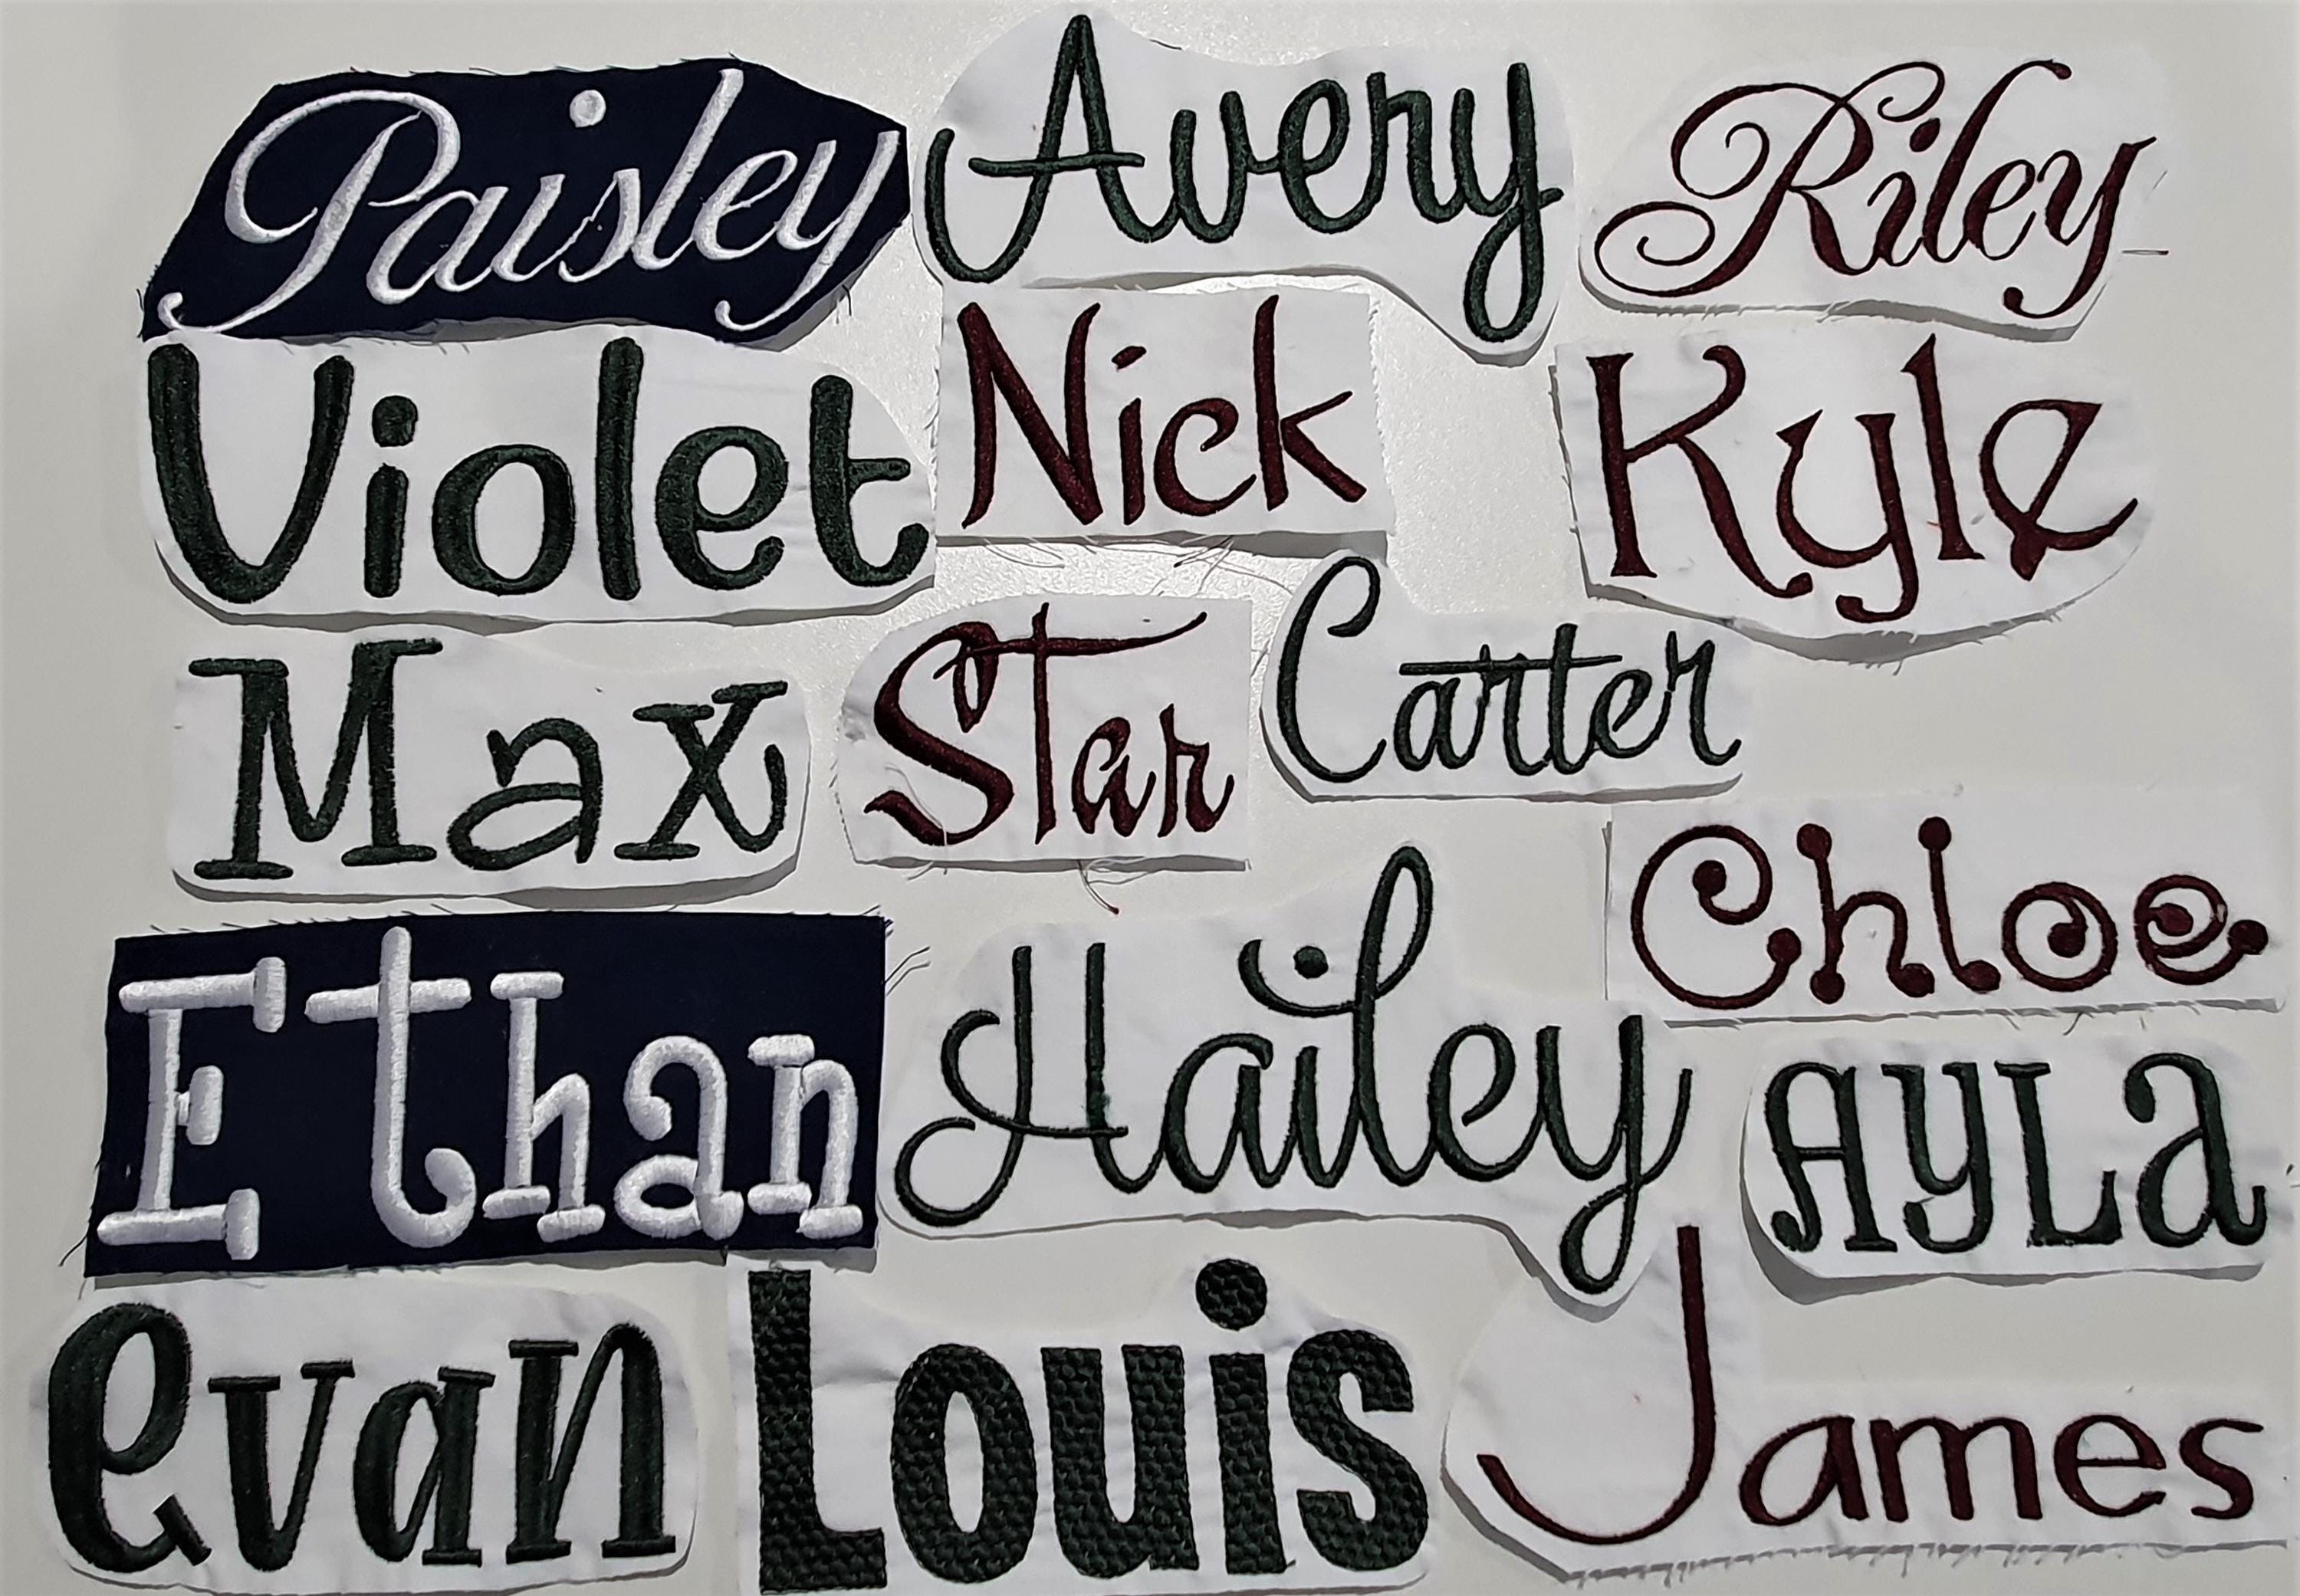 Paisley Avery Riley
Violet Nick Kyle
Max Star Carter
Chloe
Ethan Hailey AyLa
evan Louis James